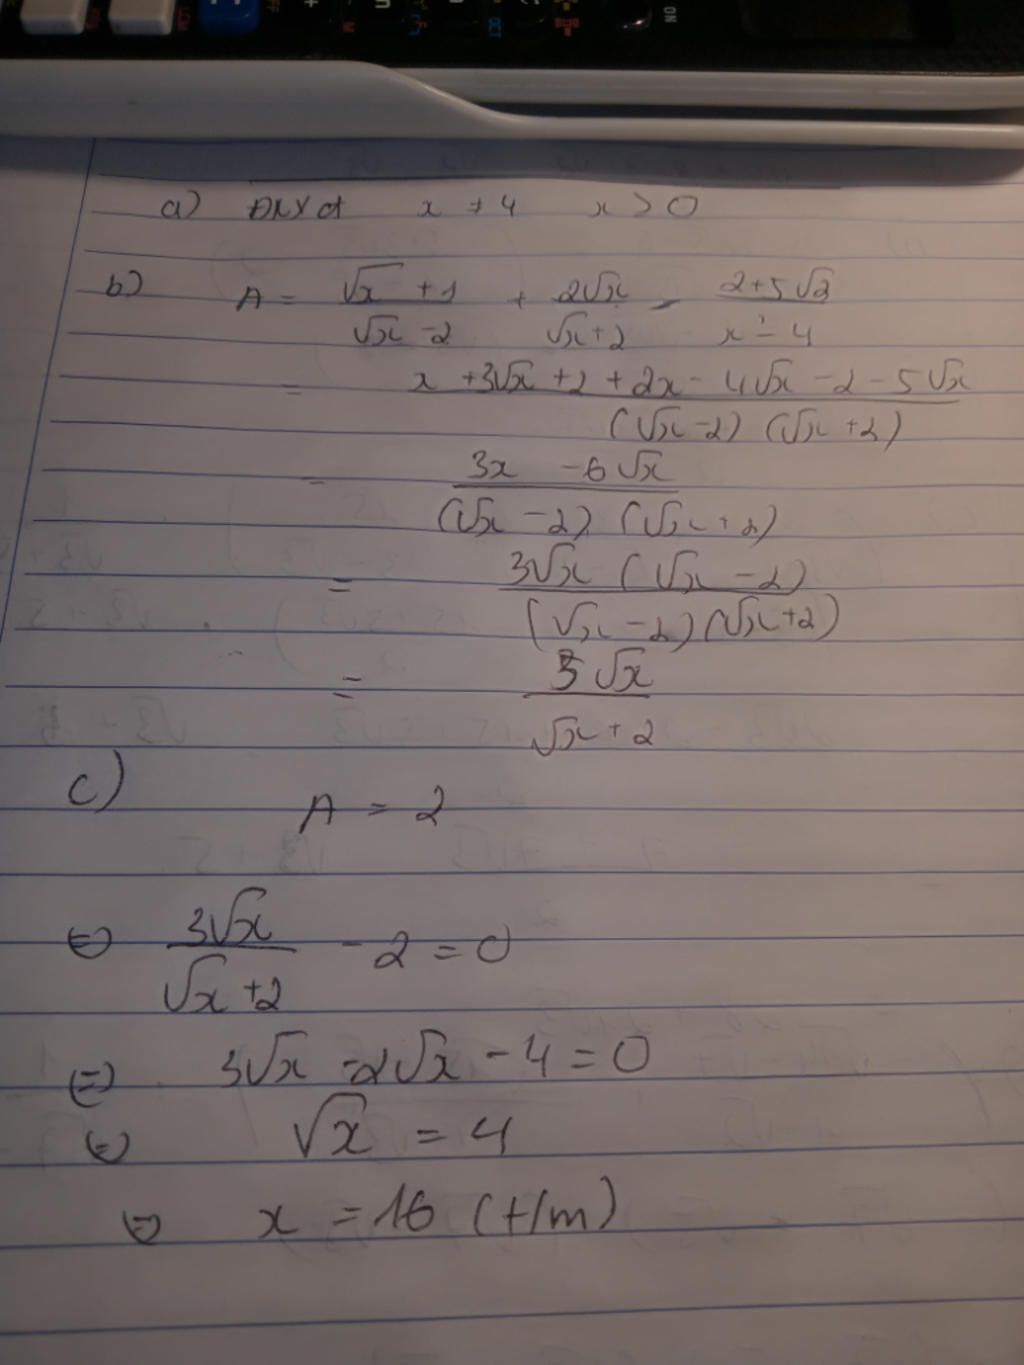 ON
a) ĐKXĐ x ≠ 4 x > 0
b) A = (√x + 1)/(√x - 2) + 2√x/(√x + 2) - (2 + 5√2)/(x - 4)
= (x + 3√x + 2 + 2x - 4√x - 2 - 5√x)/((√x - 2) (√x + 2))
= (3x - 6√x)/((√x - 2) (√x + 2))
= 3√x (√x - 2)/((√x - 2) (√x + 2))
= 3√x/(√x + 2)
c) A = 2
⇔ 3√x/(√x + 2) - 2 = 0
⇔ 3√x - 2√x - 4 = 0
⇔ √x = 4
⇔ x = 16 (t/m)